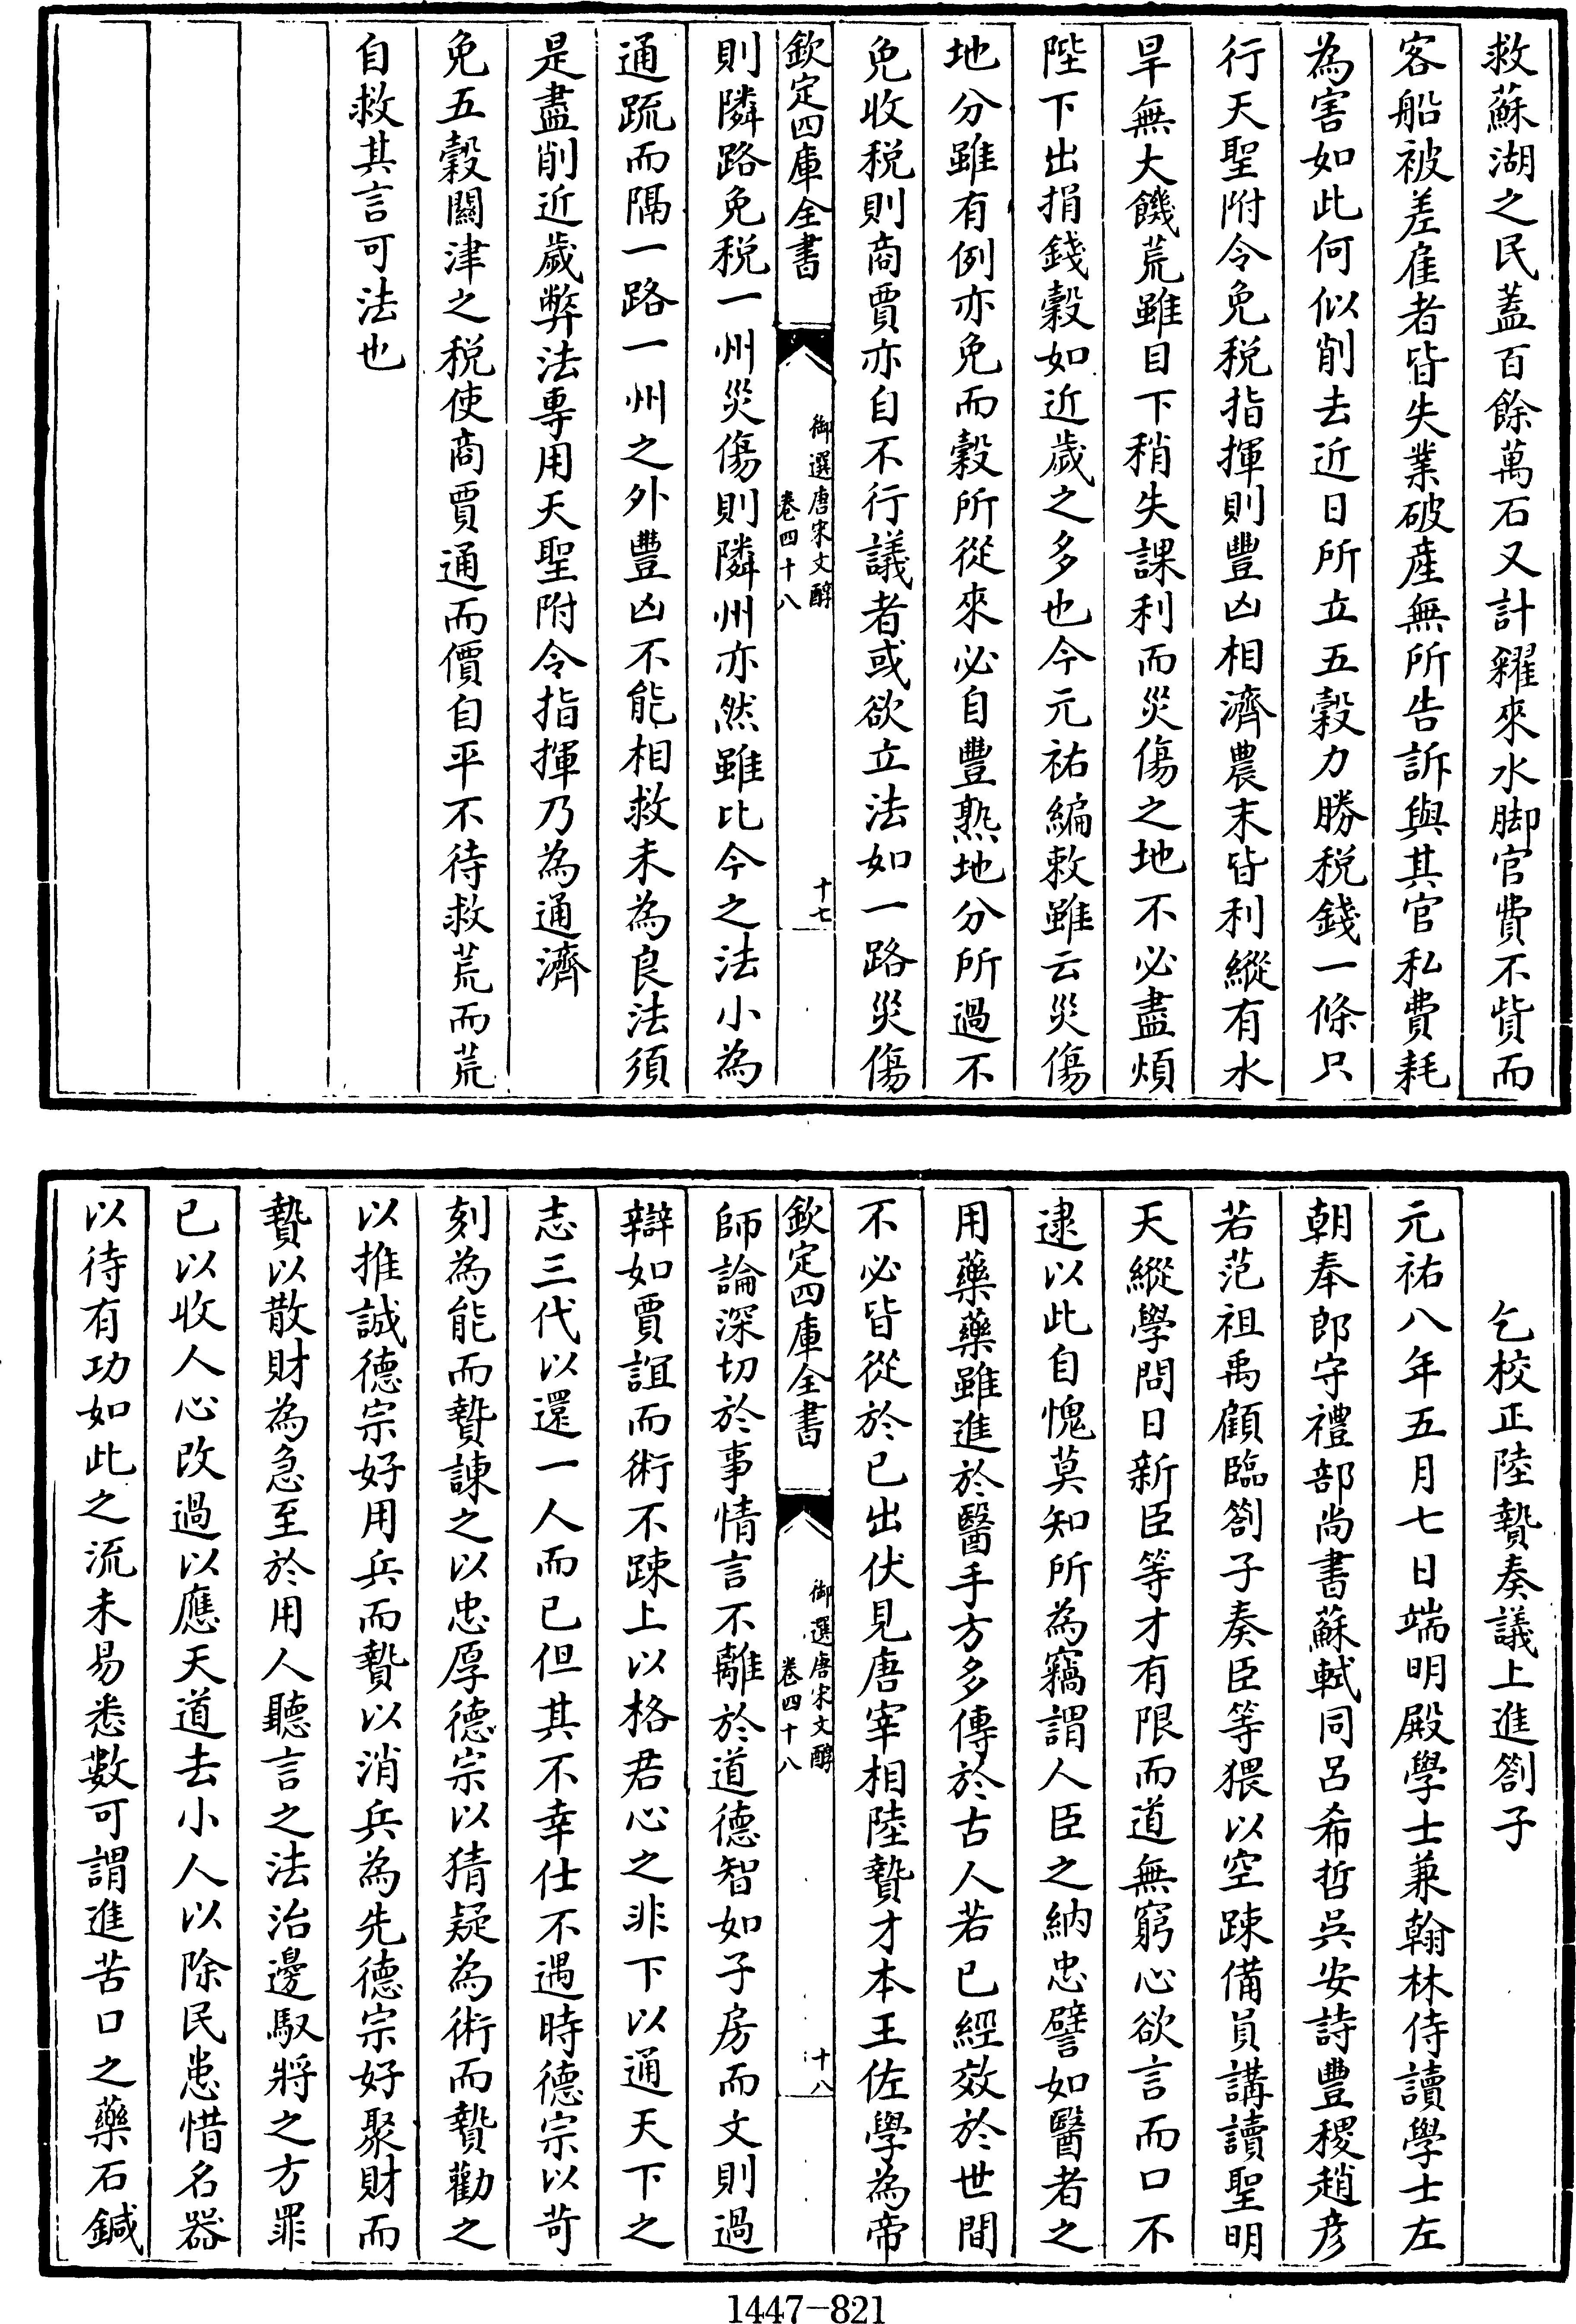 救蘇湖之民蓋百餘萬石又計糴來水脚官費不貲而
客船被差雇者皆失業破產無所告訴與其官私費耗
為害如此何似削去近日所立五穀力勝税錢一條只
行天聖附令免税指揮則豐凶相濟農末皆利縱有水
旱無大饑荒雖目下稍失課利而災傷之地不必盡煩
陛下出捐錢穀如近歲之多也今元祐編敕雖云災傷
地分雖有例亦免而穀所從來必自豐熟地分所過不
免收税則商賈亦自不行議者或欲立法如一路災傷
欽定四庫全書
御選唐宋文醇
卷四十八
十七
則隣路免税一州災傷則隣州亦然雖比今之法小為
通疏而隔一路一州之外豐凶不能相救未為良法須
是盡削近歲弊法專用天聖附令指揮乃為通濟
免五穀關津之税使商賈通而價自平不待救荒而荒
自救其言可法也
乞校正陸贄奏議上進劄子
元祐八年五月七日端明殿學士兼翰林侍讀學士左
朝奉郎守禮部尚書蘇軾同呂希哲吳安詩豐稷趙彦
若范祖禹顧臨劄子奏臣等猥以空疎備員講讀聖明
天縱學問日新臣等才有限而道無窮心欲言而口不
逮以此自愧莫知所為竊謂人臣之納忠譬如醫者之
用藥藥雖進於醫手方多傳於古人若已經效於世間
不必皆從於已出伏見唐宰相陸贄才本王佐學為帝
欽定四庫全書
御選唐宋文醇
卷四十八
十八
師論深切於事情言不離於道德智如子房而文則過
辯如賈誼而術不疎上以格君心之非下以通天下之
志三代以還一人而已但其不幸仕不遇時德宗以苛
刻為能而贄諫之以忠厚德宗以猜疑為術而贄勸之
以推誠德宗好用兵而贄以消兵為先德宗好聚財而
贄以散財為急至於用人聽言之法治邊馭將之方罪
已以收人心改過以應天道去小人以除民患惜名器
以待有功如此之流未易悉數可謂進苦口之藥石鍼
1447-821